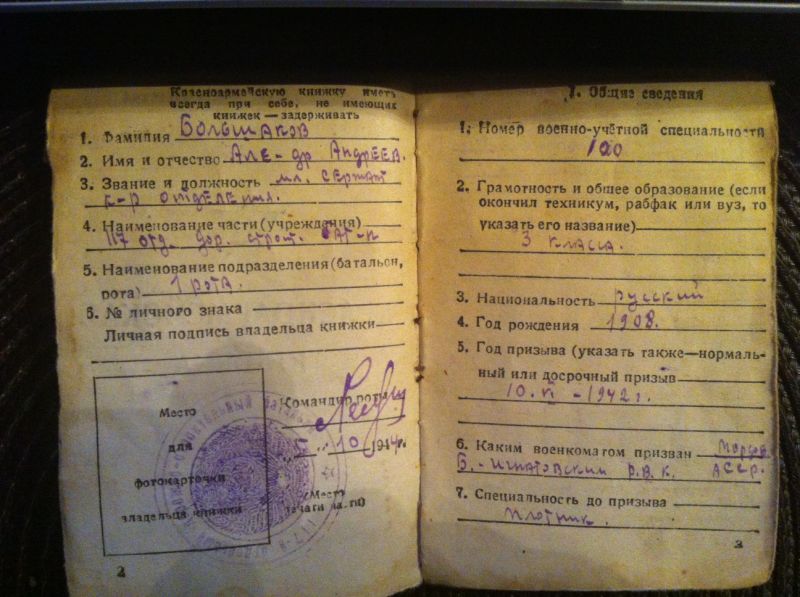 Красноармейскую книжку иметь
всегда при себе, не имеющих
книжек — задерживать
1. Фамилия Большаков
2. Имя и отчество Але-др Андреев.
3. Звание и должность мл. сержант
к-р отделения.
4. Наименование части (учреждения)
117 отд. дор. строит. бат-н
5. Наименование подразделения (батальон,
рота) 1 рота.
6. № личного знака
Личная подпись владельца книжки
Место
для
фотокарточки
владельца книжки
Командир роты
10 1944г.
(Место
печати части)
2
I. Общие сведения
1. Номер военно-учётной специальности
120
2. Грамотность и общее образование (если
окончил техникум, рабфак или вуз, то
указать его название)
3 класса.
3. Национальность русский
4. Год рождения 1908.
5. Год призыва (указать также—нормаль-
ный или досрочный призыв
10. VI - 1942 г.
6. Каким военкоматом призван Мордов.
Б.-Игнатовским Р.В.К. АССР.
7. Специальность до призыва
плотник.
3